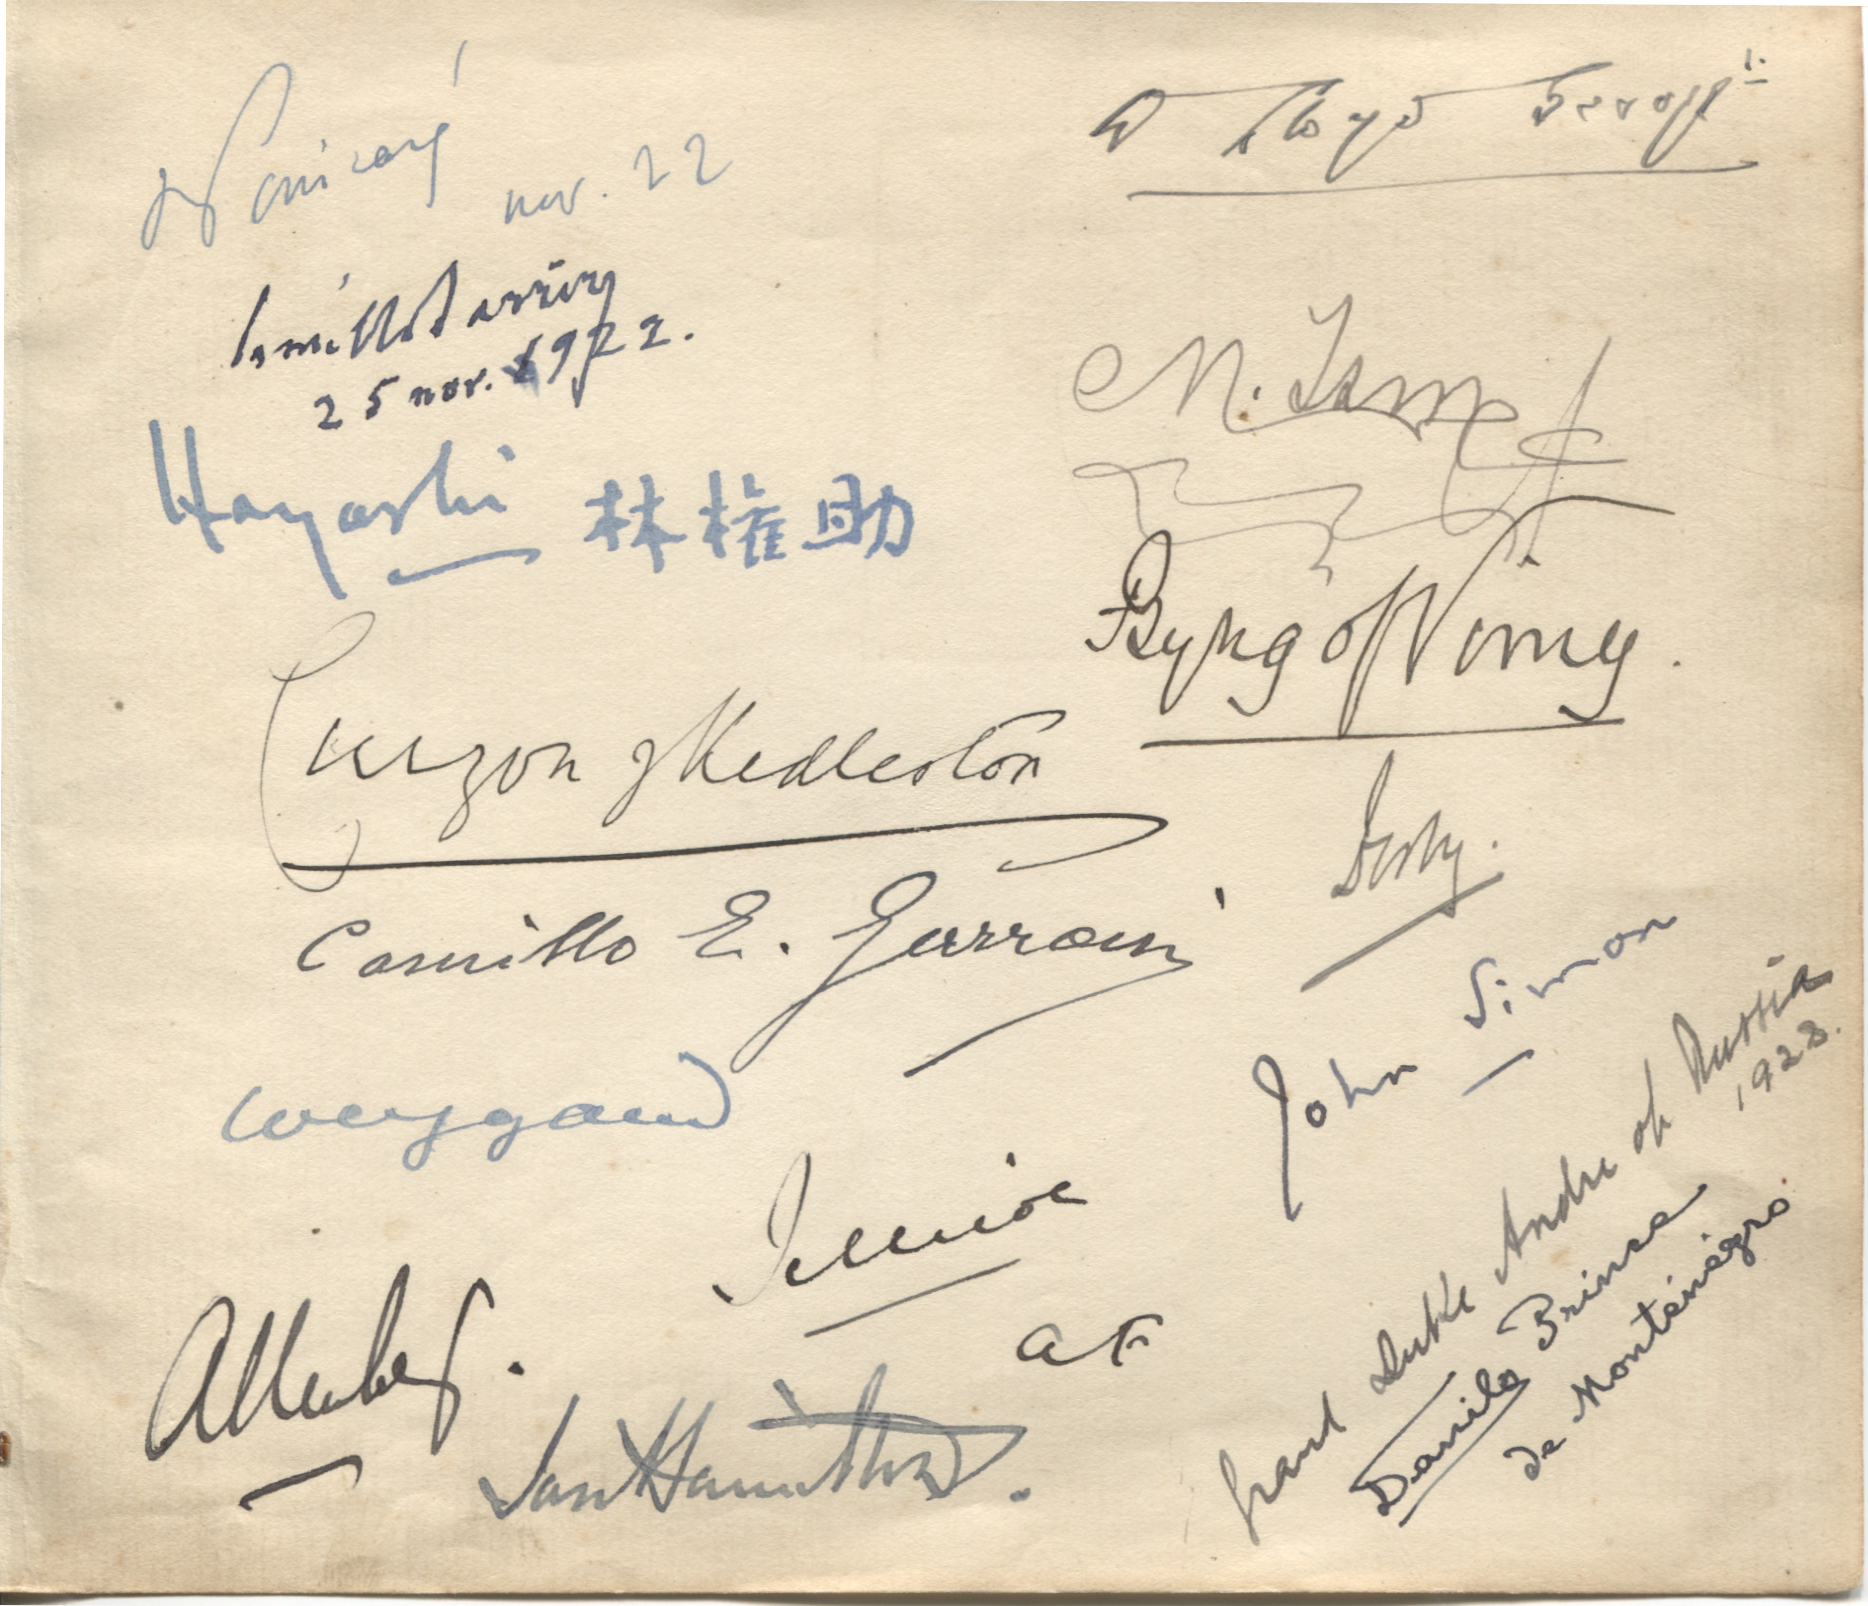 nov. 22
25 nov. 1922.
Hayashi 林権助
Curzon of Kedleston
Camillo E. Garroni
Weygand
Allenby.
Jellicoe
a F
Ian Hamilton.
D Lloyd George
M.
Byng of Vimy.
Derby.
John Simon
Grand Duke Andre of Russia
1928.
Danilo Prince
de Monténégro